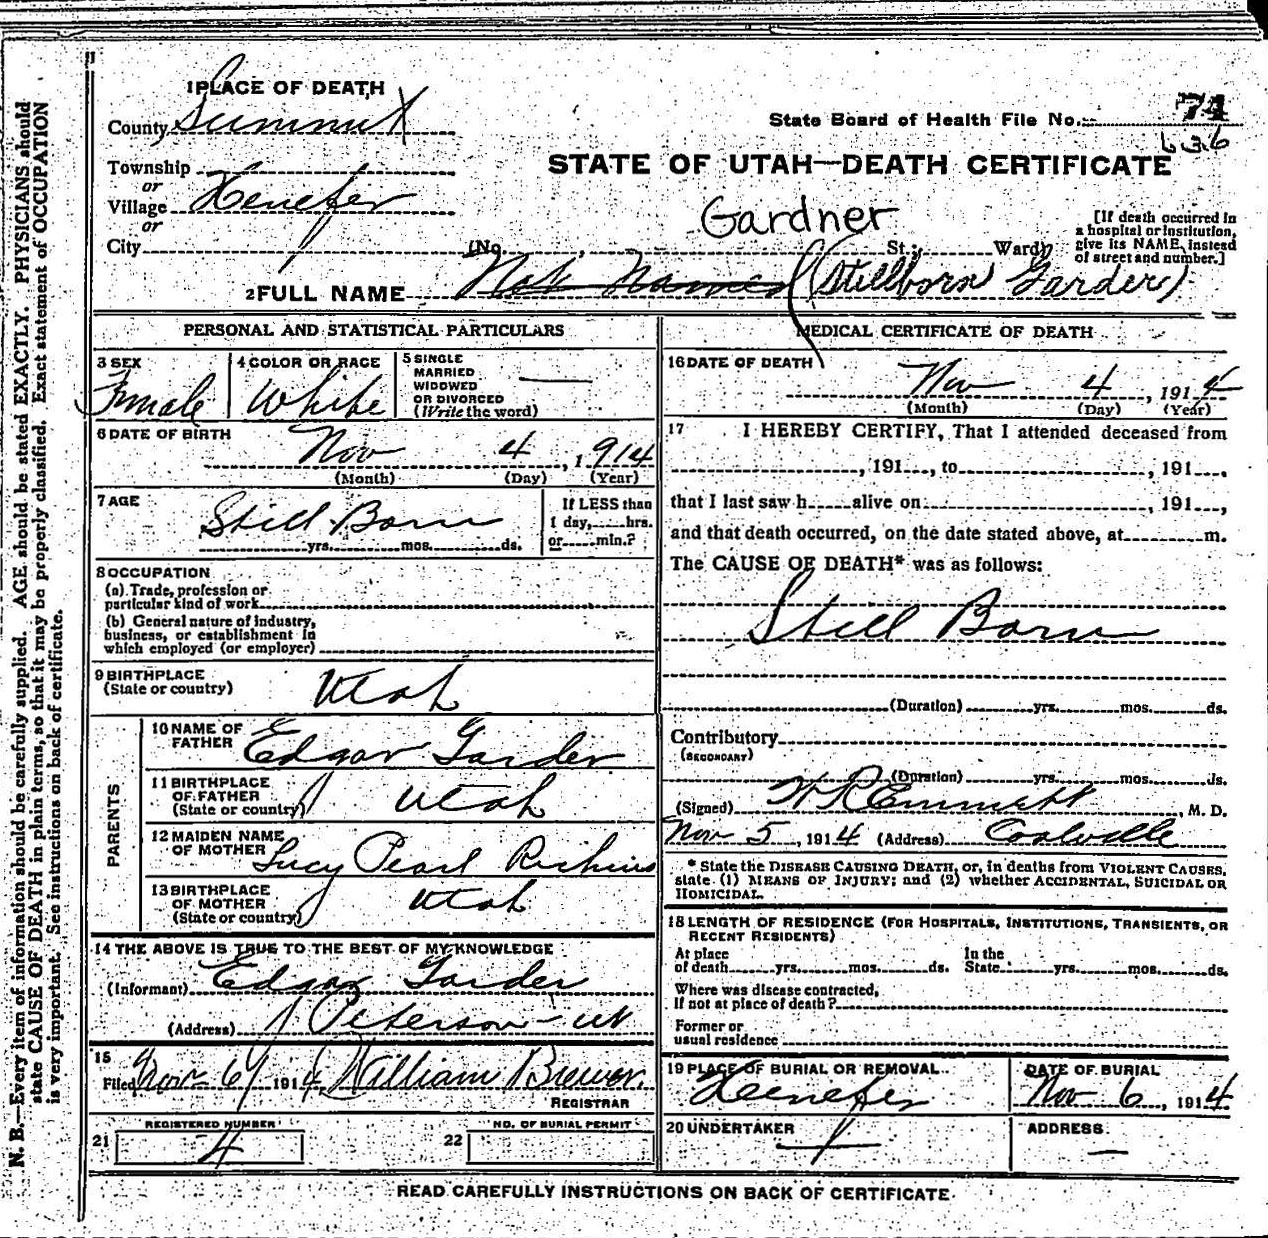 1 PLACE OF DEATH
County Summit
State Board of Health File No. 74
636
Township
or
Village Henefer
or
City (No. , St.; Ward)
STATE OF UTAH—DEATH CERTIFICATE
Gardner
[If death occurred in
a hospital or institution,
give its NAME, instead
of street and number.]
2 FULL NAME Not Named (Stillborn Garder)
PERSONAL AND STATISTICAL PARTICULARS
3 SEX
Female
4 COLOR OR RACE
White
5 SINGLE
MARRIED
WIDOWED
OR DIVORCED
(Write the word)
6 DATE OF BIRTH
Nov 4, 1914
(Month) (Day) (Year)
7 AGE
Still Born
yrs. mos. ds.
If LESS than
1 day, hrs.
or min.?
8 OCCUPATION
(a) Trade, profession or
particular kind of work
(b) General nature of industry,
business, or establishment in
which employed (or employer)
9 BIRTHPLACE
(State or country)
Utah
PARENTS
10 NAME OF
FATHER
Edgar Garder
11 BIRTHPLACE
OF FATHER
(State or country)
Utah
12 MAIDEN NAME
OF MOTHER
Lucy Pearl Richins
13 BIRTHPLACE
OF MOTHER
(State or country)
Utah
14 THE ABOVE IS TRUE TO THE BEST OF MY KNOWLEDGE
(Informant) Edgar Garder
(Address) Peterson - Ut
15
Filed Nov 6, 1914 William Brewer.
REGISTRAR
21 REGISTERED NUMBER
4
22 NO. OF BURIAL PERMIT
MEDICAL CERTIFICATE OF DEATH
16 DATE OF DEATH
Nov 4, 1914
(Month) (Day) (Year)
17 I HEREBY CERTIFY, That I attended deceased from
, 191 , to , 191 ,
that I last saw h alive on , 191 ,
and that death occurred, on the date stated above, at m.
The CAUSE OF DEATH* was as follows:
Still Born
(Duration) yrs. mos. ds.
Contributory
(SECONDARY)
(Duration) yrs. mos. ds.
(Signed) W R Emmett, M. D.
Nov 5, 1914 (Address) Coalville
* State the DISEASE CAUSING DEATH, or, in deaths from VIOLENT CAUSES,
state (1) MEANS OF INJURY; and (2) whether ACCIDENTAL, SUICIDAL OR
HOMICIDAL.
18 LENGTH OF RESIDENCE (FOR HOSPITALS, INSTITUTIONS, TRANSIENTS, OR
RECENT RESIDENTS)
At place
of death yrs. mos. ds.
In the
State yrs. mos. ds.
Where was disease contracted,
if not at place of death?
Former or
usual residence
19 PLACE OF BURIAL OR REMOVAL
Henefer
DATE OF BURIAL
Nov 6, 1914
20 UNDERTAKER
ADDRESS
READ CAREFULLY INSTRUCTIONS ON BACK OF CERTIFICATE.
N. B.—Every item of information should be carefully supplied. AGE should be stated EXACTLY. PHYSICIANS should
state CAUSE OF DEATH in plain terms, so that it may be properly classified. Exact statement of OCCUPATION
is very important. See instructions on back of certificate.